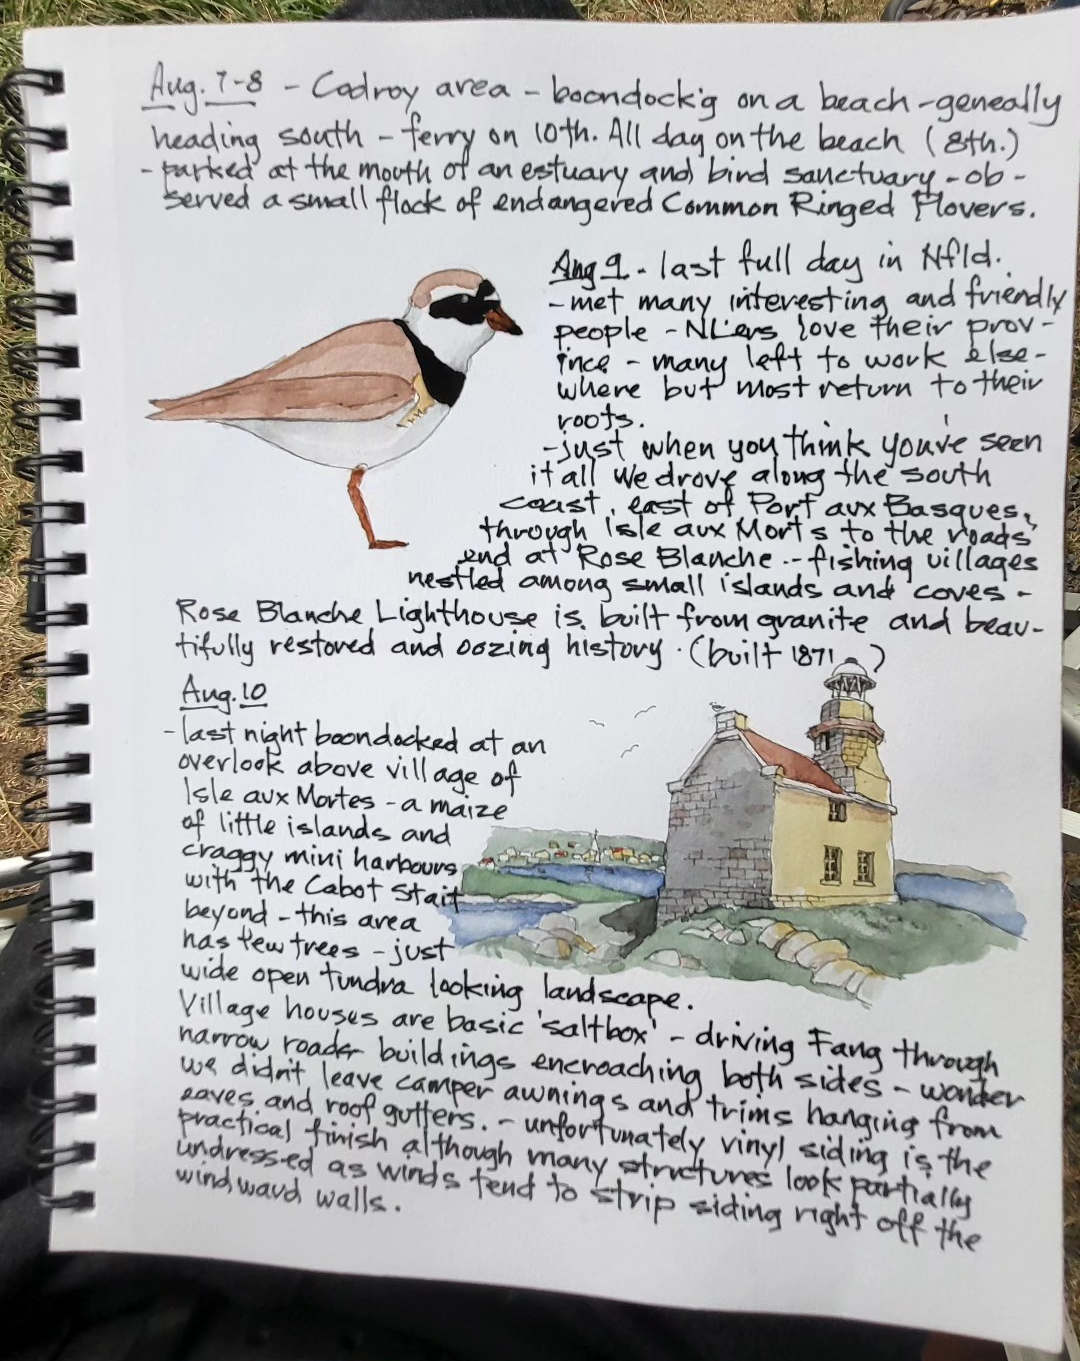 Aug. 7-8 - Codroy area - boondock'g on a beach - geneally
heading south - ferry on 10th. All day on the beach (8th.)
- parked at the mouth of an estuary and bird sanctuary - ob-
served a small flock of endangered Common Ringed Plovers.
Aug 9 - last full day in Nfld.
- met many interesting and friendly
people - NL'ers love their prov-
ince - many left to work else-
where but most return to their
roots.
- just when you think you've seen
it all we drove along the south
coast, east of Port aux Basques,
through Isle aux Morts to the roads'
end at Rose Blanche -- fishing villages
nestled among small islands and coves -
Rose Blanche Lighthouse is built from granite and beau-
tifully restored and oozing history. (built 1871 )
Aug. 10
- last night boondocked at an
overlook above village of
Isle aux Mortes - a maize
of little islands and
craggy mini harbours
with the Cabot Stait
beyond - this area
has few trees - just
wide open tundra looking landscape.
Village houses are basic 'saltbox' - driving Fang through
narrow roads buildings encroaching both sides - wonder
we didn't leave camper awnings and trims hanging from
eaves and roof gutters. - unfortunately vinyl siding is the
practical finish although many structures look partially
undressed as winds tend to strip siding right off the
windward walls.